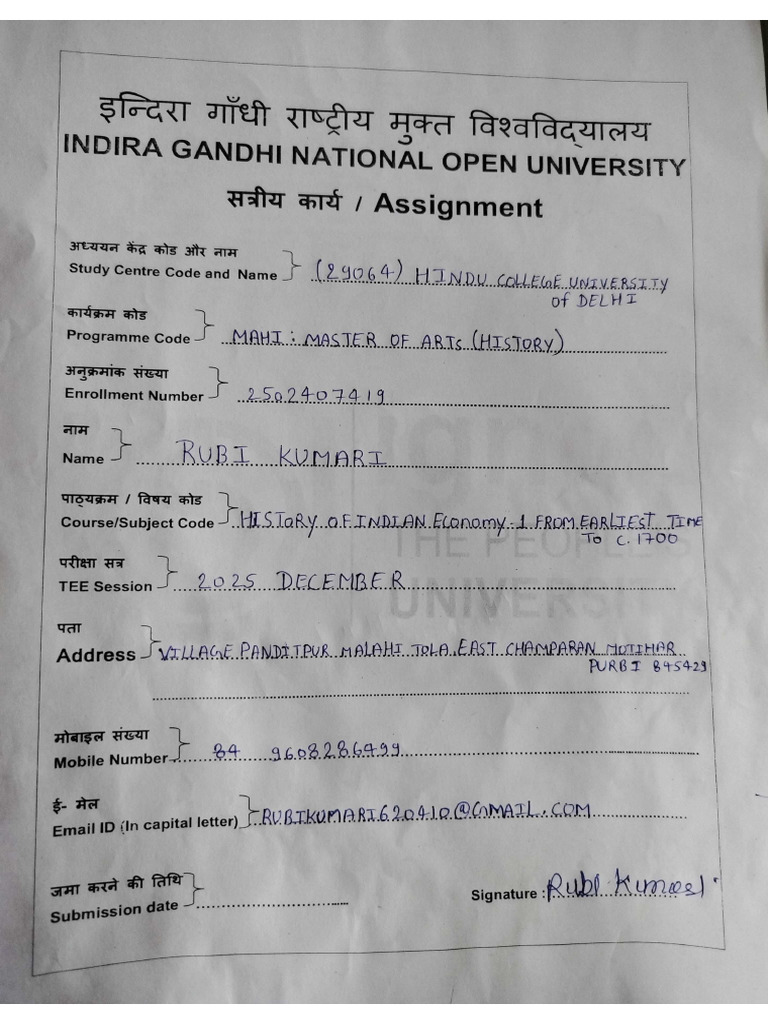 इन्दिरा गाँधी राष्ट्रीय मुक्त विश्वविद्यालय
INDIRA GANDHI NATIONAL OPEN UNIVERSITY
सत्रीय कार्य / Assignment
अध्ययन केंद्र कोड और नाम
Study Centre Code and Name (29064) HINDU COLLEGE UNIVERSITY
of DELHI
कार्यक्रम कोड
Programme Code MAHI : MASTER OF ARTs (HISTORY)
अनुक्रमांक संख्या
Enrollment Number 2502407419
नाम
Name RUBI KUMARI
पाठ्यक्रम / विषय कोड
Course/Subject Code HISToRY OF INDIAN Economy-1 FROM EARLIEST TIME
To C. 1700
परीक्षा सत्र
TEE Session 2025 DECEMBER
पता
Address VILLAGE PANDITPUR MALAHI TOLA, EAST CHAMPARAN MOTIHAR
PURBI 845429
मोबाइल संख्या
Mobile Number 84 9608286499
ई- मेल
Email ID (In capital letter) RUBIKUMARI620410@GMAIL.COM
जमा करने की तिथि
Submission date
Signature : Rubi Kumari
THE PEOPLE'S
UNIVERSITY